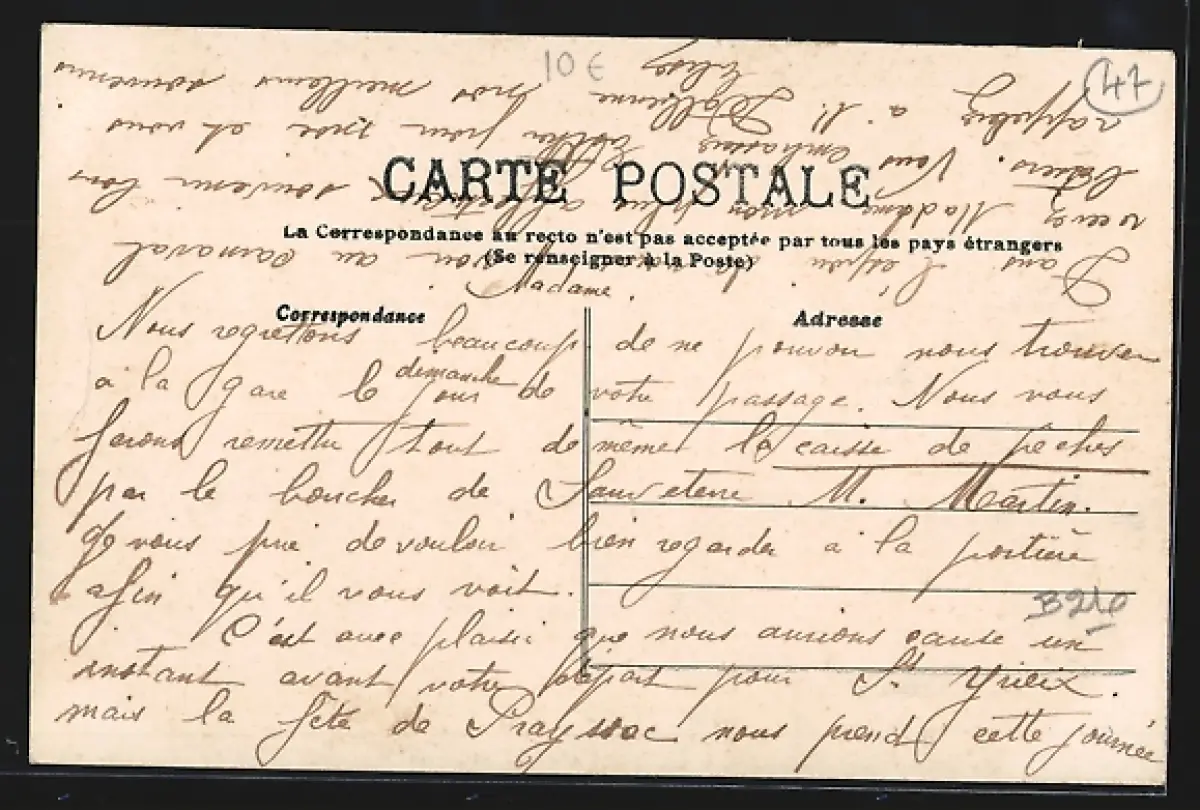 10 €
47
CARTE POSTALE
La Correspondance au recto n'est pas acceptée par tous les pays étrangers
(Se renseigner à la Poste)
Correspondance
Adresse
Madame,
Nous regrettons beaucoup de ne pouvoir nous trouver
à la gare le dimanche jour de votre passage. Nous vous
ferons remettre tout de même la caisse de pêches
par le boucher de Sauveterre M. Martin.
Je vous prie de vouloir bien regarder à la portière
afin qu'il vous voit.
C'est avec plaisir que nous aurions causé un
instant avant votre départ pour St Yrieix.
mais la fête de Prayssac nous prend cette journée
B210
Dans l'espoir de vous voir au carnaval
recevez Madame mon plus affectueux souvenir
baisers. Vous embrasserez pour moi et vous
rappelez à M. nos meilleurs souvenirs